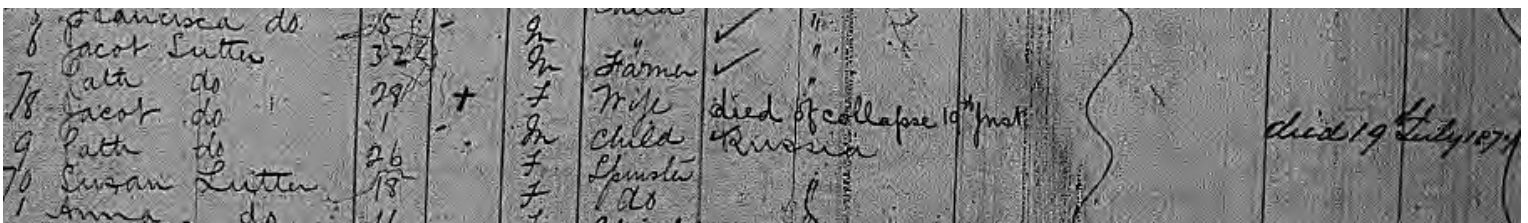 Francisca do. 15 -
6 Jacob Sutter 32 M Farmer ✓ "
7 Cath do 29 + F Wife died of collapse 19th Inst died 19th July 187
8 Jacob do 1 M Child Russia
9 Cath do 26 F Spinster
70 Susan Sutter 18 F do "
1 Anna do 11 F